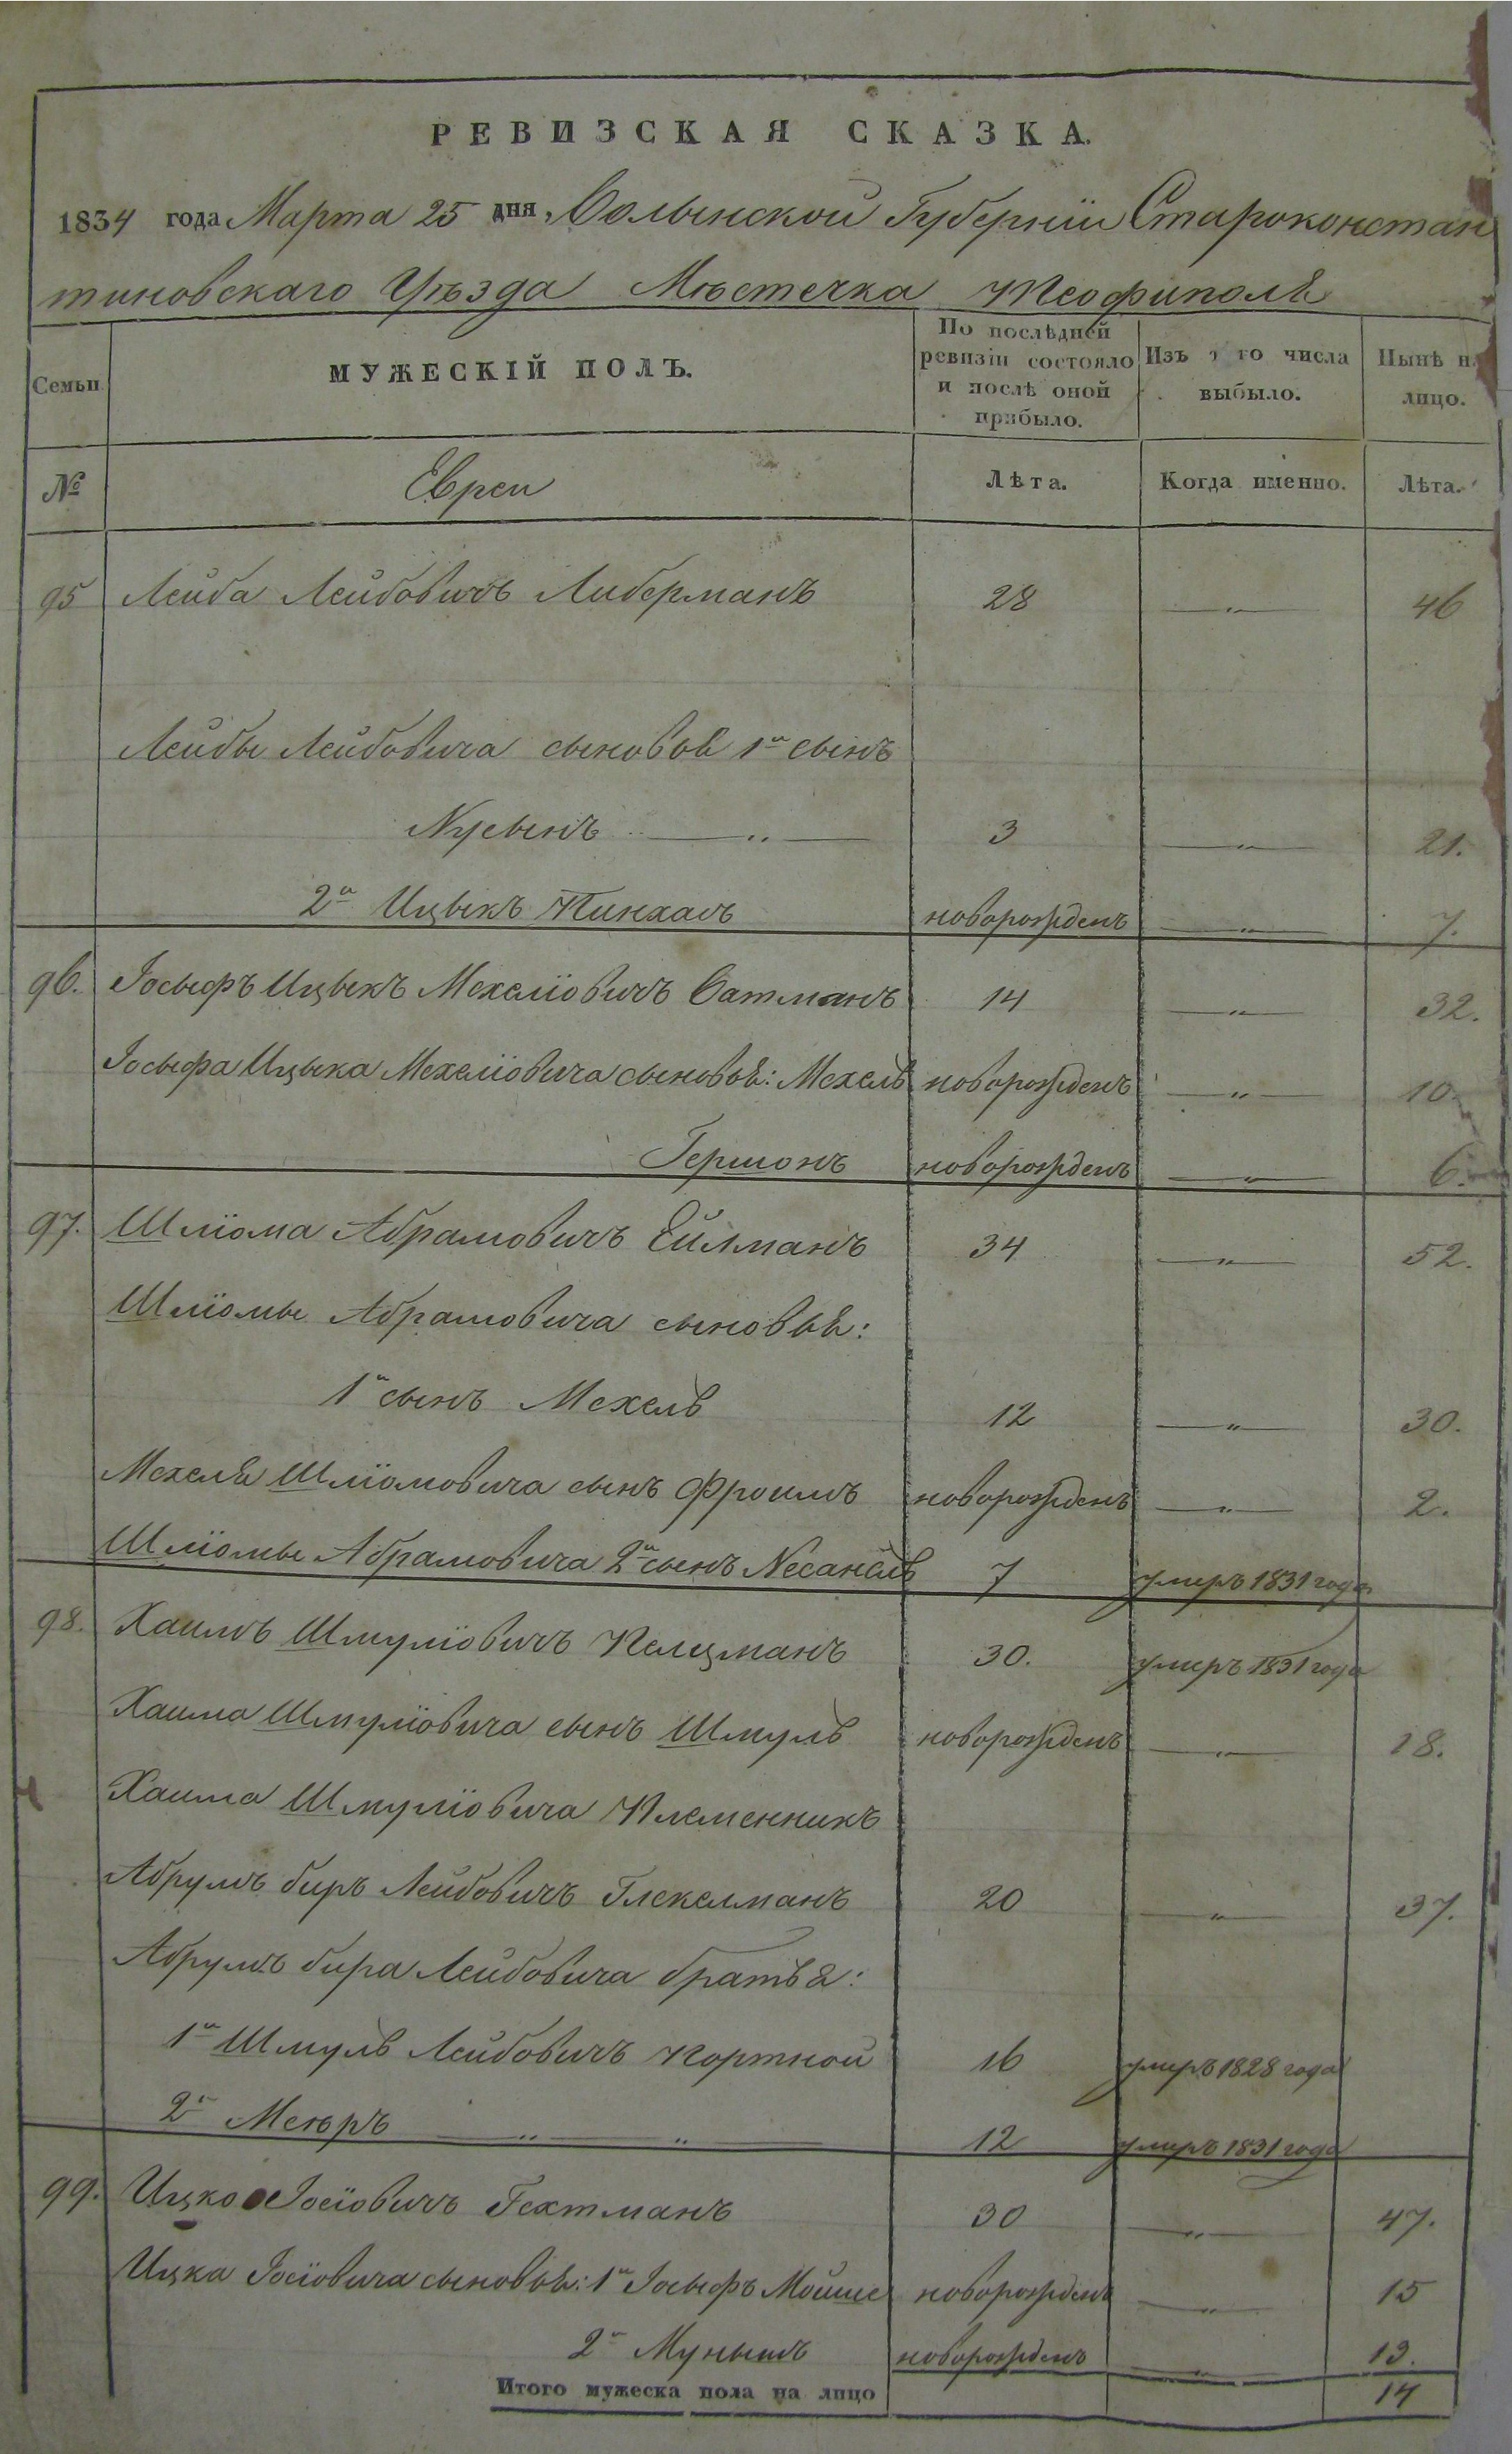 РЕВИЗСКАЯ СКАЗКА.
1834 года Марта 25 дня, Волынской Губерніи Староконстан
тиновскаго Уѣзда Мѣстечка Теофиполя
Семьи
МУЖЕСКІЙ ПОЛЪ.
По послѣдней ревизіи состояло и послѣ оной прибыло.
Изъ того числа выбыло.
Нынѣ на лицо.
№ Евреи Лѣта. Когда именно. Лѣта.
95 Лейба Лейбовичъ Либерманъ 28 —„— 46
Лейбы Лейбовича сыновья 1й сынъ
Нусынъ —„— 3 —„— 21.
2й Ицыкъ Пинхасъ новорожденъ —„— 7.
96. Іосыфъ Ицыкъ Мехеліовичъ Ватманъ 14 —„— 32.
Іосыфа Ицыка Мехеліовича сыновья: Мехель новорожденъ —„— 10.
Гершонъ новорожденъ —„— 6.
97. Шліома Абрамовичъ Ейлманъ 34 —„— 52.
Шліомы Абрамовича сыновья:
1й сынъ Мехель 12 —„— 30.
Мехеля Шліомовича сынъ Фроимъ новорожденъ —„— 2.
Шліомы Абрамовича 2й сынъ Несанель 7 умеръ 1831 года
98. Хаимъ Шмуліовичъ Келцманъ 30. умеръ 1831 года
Хаима Шмуліовича сынъ Шмуль новорожденъ —„— 18.
Хаима Шмуліовича Племенникъ
Абрумъ биръ Лейбовичъ Глекелманъ 20 —„— 37.
Абрумъ бира Лейбовича братья:
1й Шмуль Лейбовичъ Портной 16 умеръ 1828 года
2й Меюръ —„— „— 12 умеръ 1831 года
99. Ицко Іосіовичъ Гехтманъ 30 —„— 47.
Ицка Іосіовича сыновья: 1й Іосыфъ Мойше новорожденъ —„— 15
2й Мунышъ новорожденъ —„— 13.
Итого мужеска пола на лицо 14